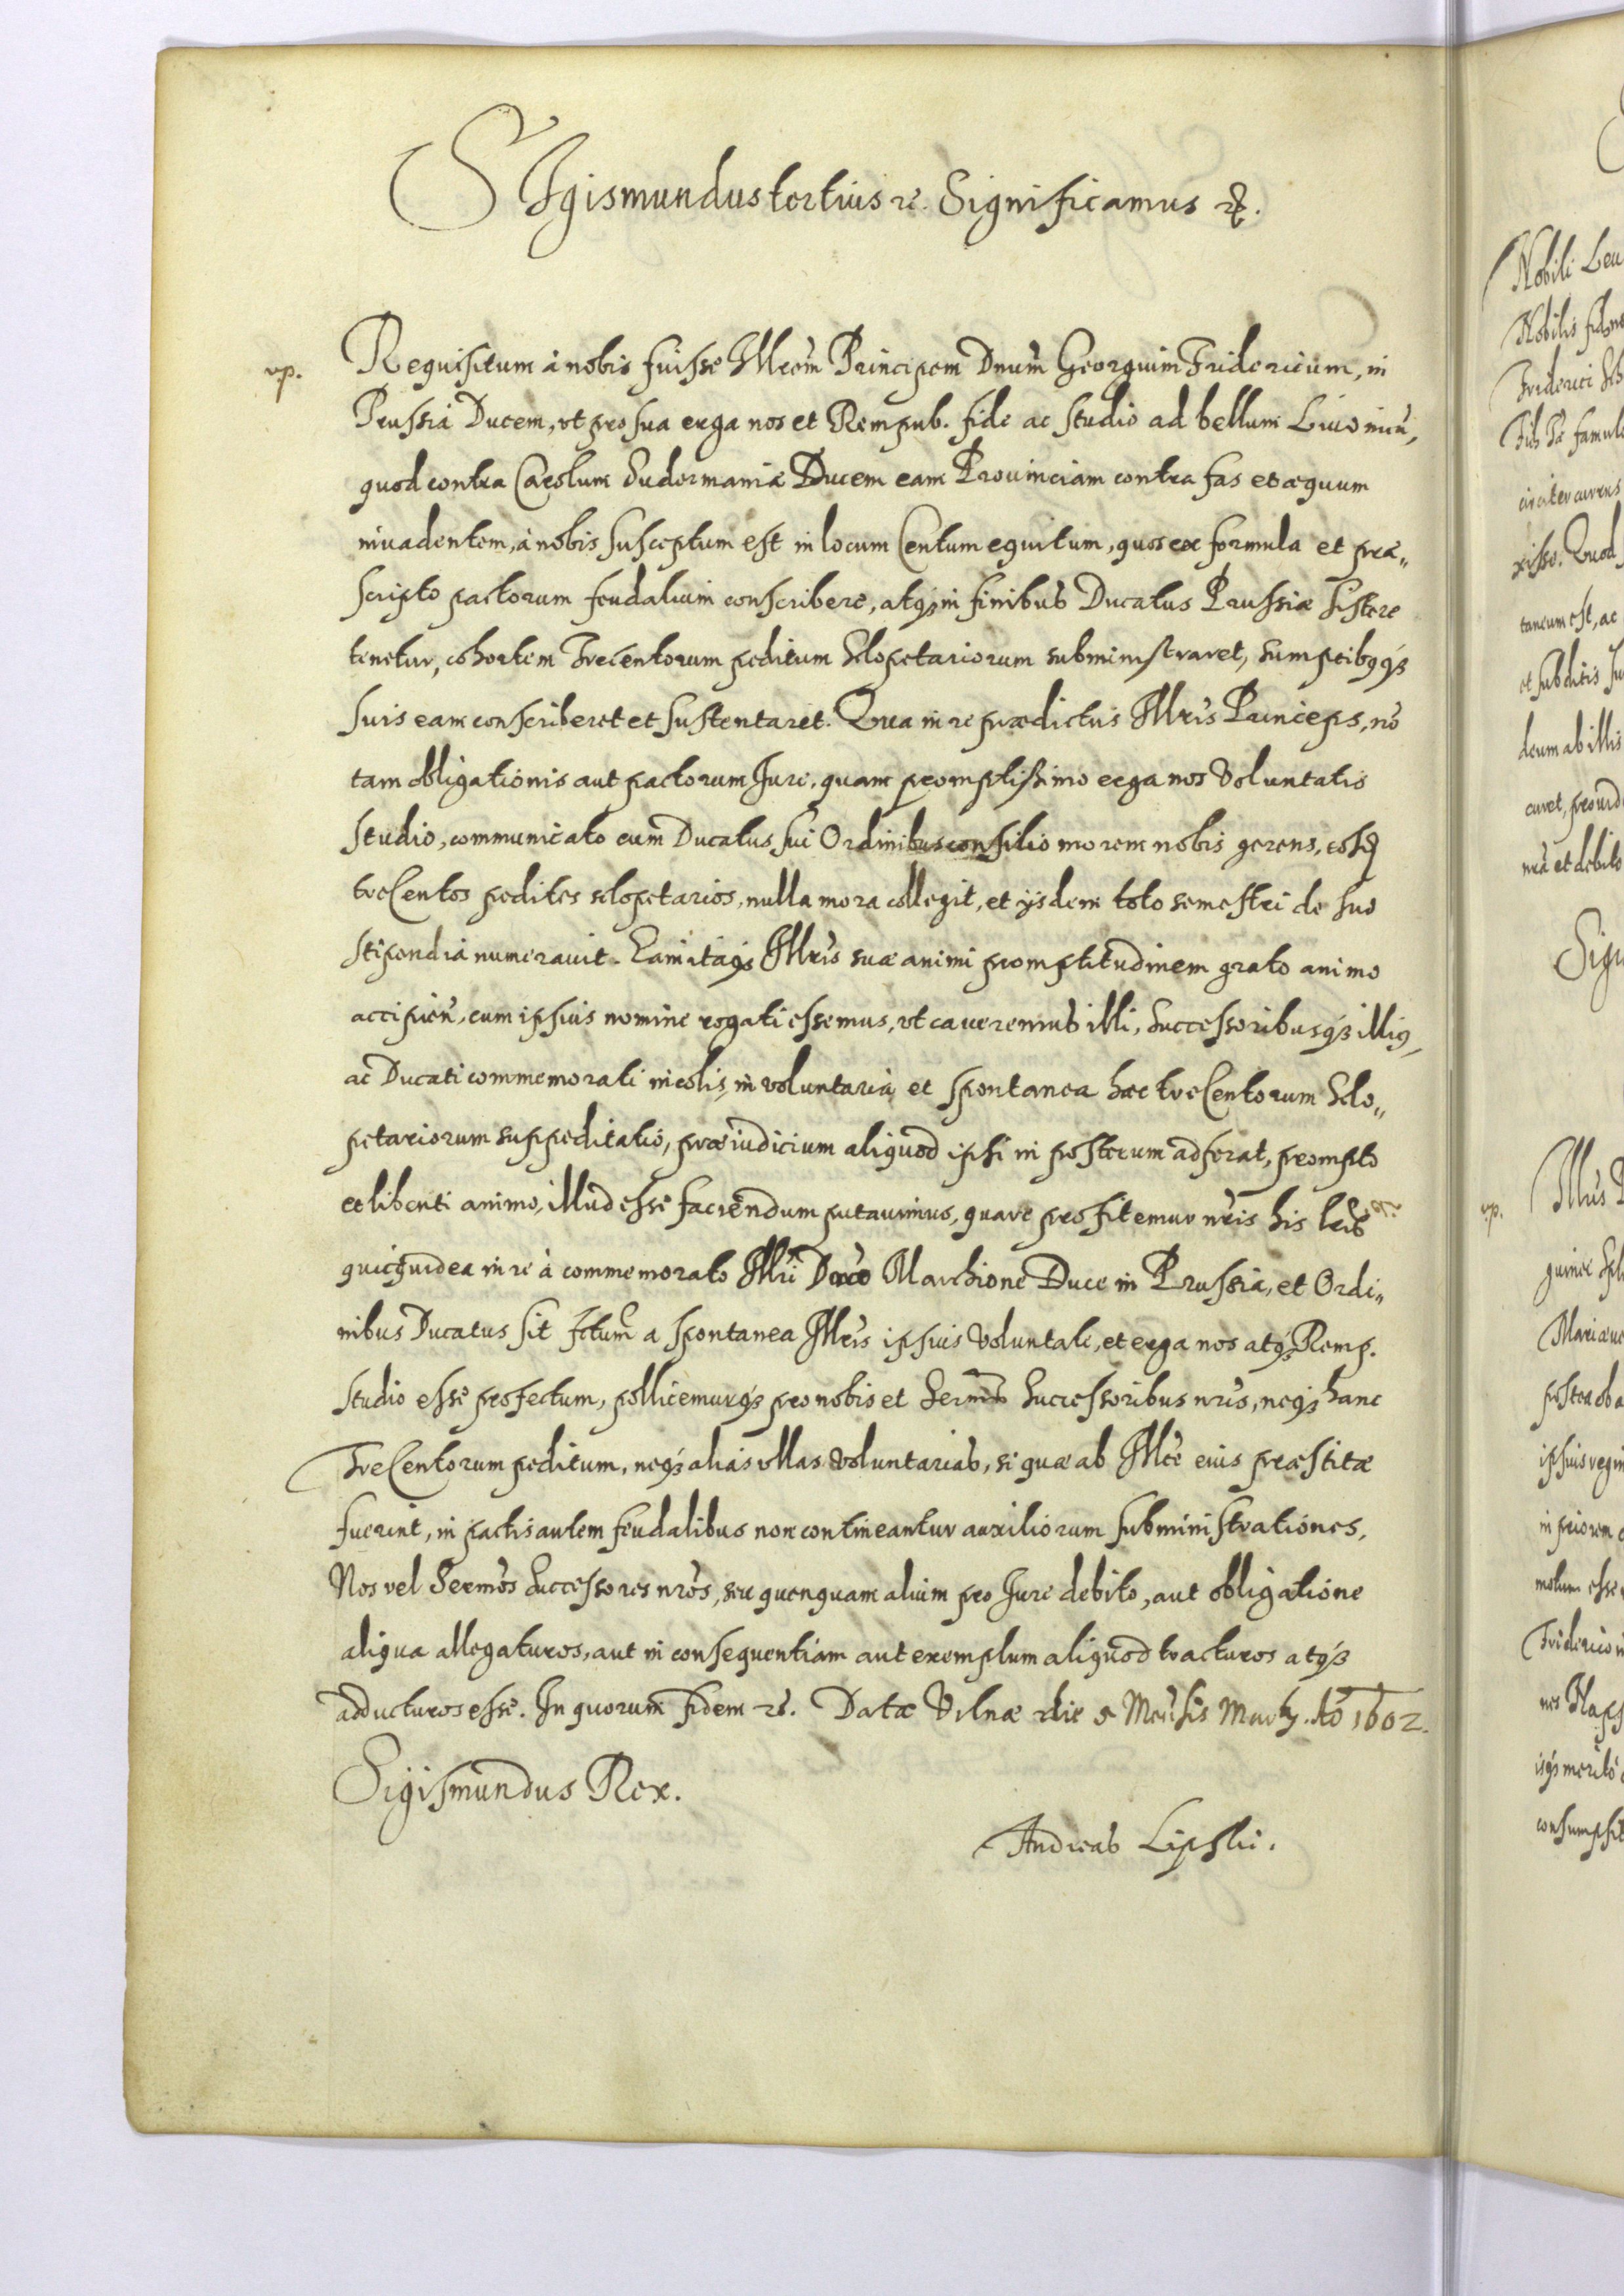 SIgismundus tertius etc. Significamus etc.
vp. Requisitum à nobis fuisse Illrem Principem Dnum Georgium Fridericum, in
Prussia Ducem, vt pro sua erga nos et Rempub. fide ac studio ad bellum Liuonicũ,
quod contra Carolum Sudermaniæ Ducem eam Prouinciam contra fas et æquum
inuadentem, à nobis susceptum est in locum Centum equitum, quos ex formula et præ„
scripto pactorum feudalium conscribere, atqꝫ in finibus Ducatus Prussiæ sistere
tenetur, cohortem Trecentorum peditum Sclopetariorum subministraret, sumptibqꝫ
suis eam conscriberet et sustentaret. Qua in re prædictus Illris Princeps, nõ
tam obligationis aut pactorum Jure, quam promptissimo erga nos Voluntatis
studio, communicato cum Ducatus sui Ordinibus consilio morem nobis gerens, eosdem
treCentos pedites sclopetarios, nulla mora collegit, et ijsdem toto semestri de suo
stipendia numerauit. Eam itaqꝫ Illris suæ animi promptitudinem grato animo
accipien, cum ipsius nomine rogati essemus, vt caueremus illi, Successoribusqꝫ illiq,
ac Ducati commemorati incolis, in voluntaria et spontanea hæc treCentorum Sclo„
petariorum suppeditatio, præiudicium aliquod ipsi in posterum adferat, prompto
et libenti animo, illud esse faciendum putauimus, quare profitemur nris his lris
quicquid ea in re à commemorato Illri Marchione Duce in Prussia, et Ordi„
nibus Ducatus sit fctum a spontanea Illris ipsius Voluntate, et erga nos atqꝫ Remp.
studio esse profectum, pollicemurqꝫ pro nobis et Sermis Successoribus nris, neqꝫ hanc
TreCentorum peditum, neqꝫ alias vllas voluntarias, si quæ ab Illte eius præstitæ
fuerint, in pactis autem feudalibus non contineantur auxiliorum subministrationes,
Nos vel Sermos Successores nros, seu quenquam alium pro Jure debito, aut obligatione
aliqua allegaturos, aut in consequentiam aut exemplum aliquod tracturos atqꝫ
adducturos esse. In quorum fidem etc. Datæ Vilnæ die 5 Mensis Martij. Aō 1602.
Sigismundus Rex.
Andreas Lipski.
Nobili
Nobilis
Friderici
famul
taneum est, ac
et subditis
deum ab illis
nrà et debito
vp. Illris
Mariæ
postea ob
in priorem
motum esse
Friderico
isqꝫ merito
consumpsit